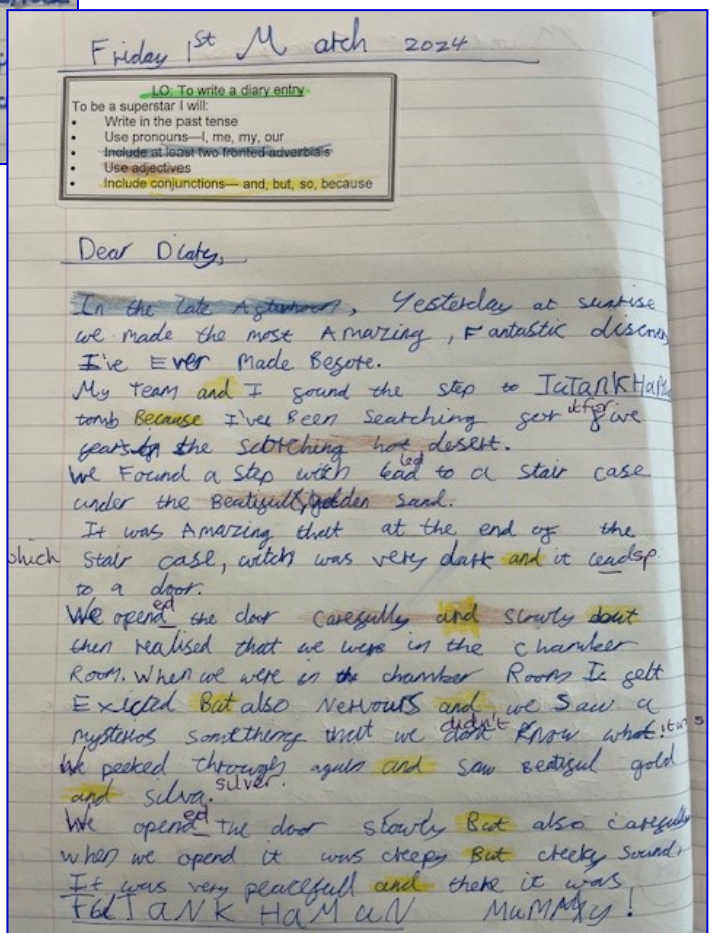 Friday 1st March 2024
LO: To write a diary entry
To be a superstar I will:
• Write in the past tense
• Use pronouns—I, me, my, our
• Include at least two fronted adverbia's
• Use adjectives
• Include conjunctions— and, but, so, because
Dear Diary,
In the late Afternoon, Yesterday at sunrise
we made the most Amazing, Fantastic
I've Ever Made Before.
My Team and I found the step to
tomb Because I've Been Searching for it for five
years in the scortching hot desert.
We Found a Step witch led to a stair case
under the Beatifull, golden sand.
It was Amazing that at the end of the
which stair case, witch was very dark and it leads sp.
to a door.
We opened the door carefully and slowly
then realised that we were in the chamber
Room. When we were in the chamber Room I felt
Exicted But also Nervours and we saw a
mysterios something that we didn't know what it was
We peeked through again and saw Beatiful gold
and silva. silver.
We opened the door slowly But also carefully
when we opend it was creepy But creeky Sound.
It was very peacefull and there it was
MuMMy!